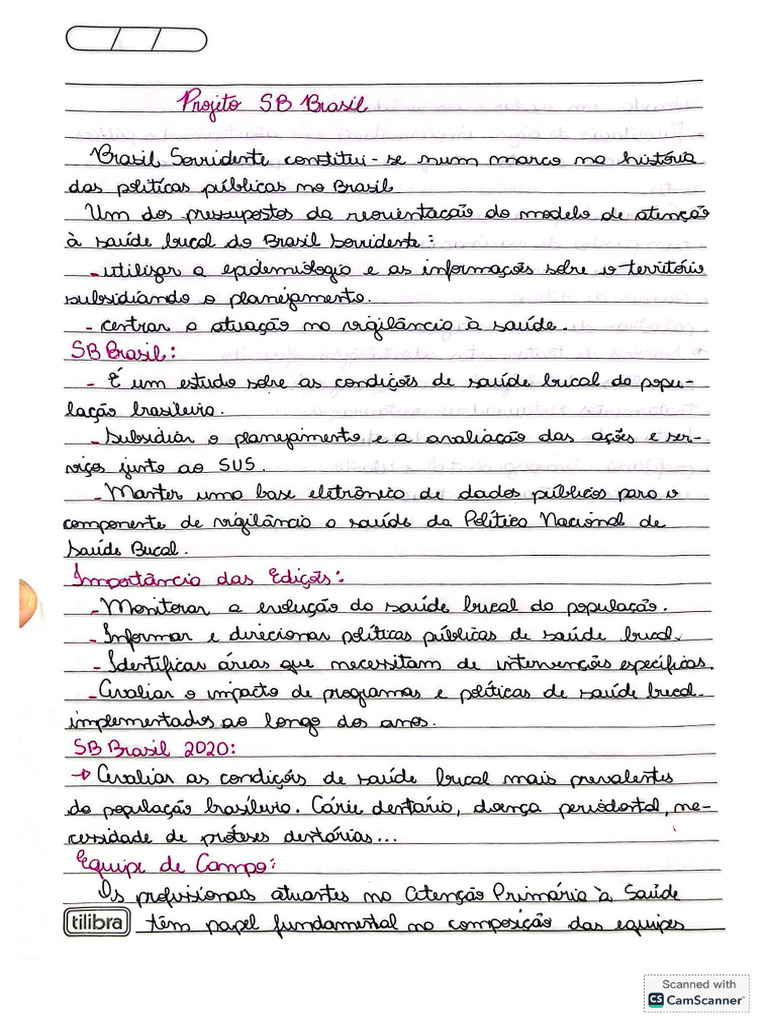 Projeto SB Brasil
Brasil Sorridente constitui-se num marco na história
das políticas públicas no Brasil
Um dos pressupostos da reorientação do modelo de atenção
à saúde bucal do Brasil Sorridente:
- utilizar a epidemiologia e as informações sobre o território
subsidiando o planejamento.
- centrar a atuação na vigilância à saúde.
SB Brasil:
- É um estudo sobre as condições de saúde bucal da popu-
lação brasileira.
- Subsidiar o planejamento e a avaliação das ações e ser-
viços junto ao SUS.
- Manter uma base eletrônica de dados públicos para o
componente de vigilância a saúde da Política Nacional de
Saúde Bucal.
Importância das Edições:
- Monitorar a evolução da saúde bucal da população.
- Informar e direcionar políticas públicas de saúde bucal.
- Identificar áreas que necessitam de intervenções específicas.
- Avaliar o impacto de programas e políticas de saúde bucal
implementados ao longo dos anos.
SB Brasil 2020:
→ Avaliar as condições de saúde bucal mais prevalentes
da população brasileira. Cárie dentária, doença periodontal, ne-
cessidade de próteses dentárias...
Equipe de Campo:
Os profissionais atuantes na Atenção Primária à Saúde
têm papel fundamental na composição das equipes
tilibra
Scanned with
CS CamScanner